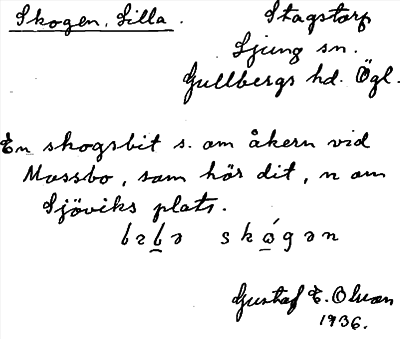 Skogen, Lilla. Stagstorp
Ljung sn.
Gullbergs hd. Ögl.
En skogsbit s. om åkern vid
Mossbo, som hör dit, n om
Sjöviks plats.
skógən
Gustaf E. Olson
1936.